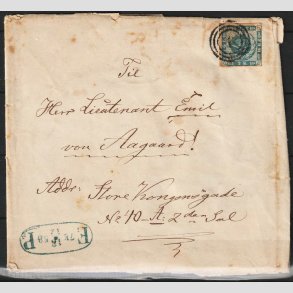 Til
Herr Lieutenant Emil
von Aagaard!
Addr: Store Kongensgade
No 10 A: 2den Sal